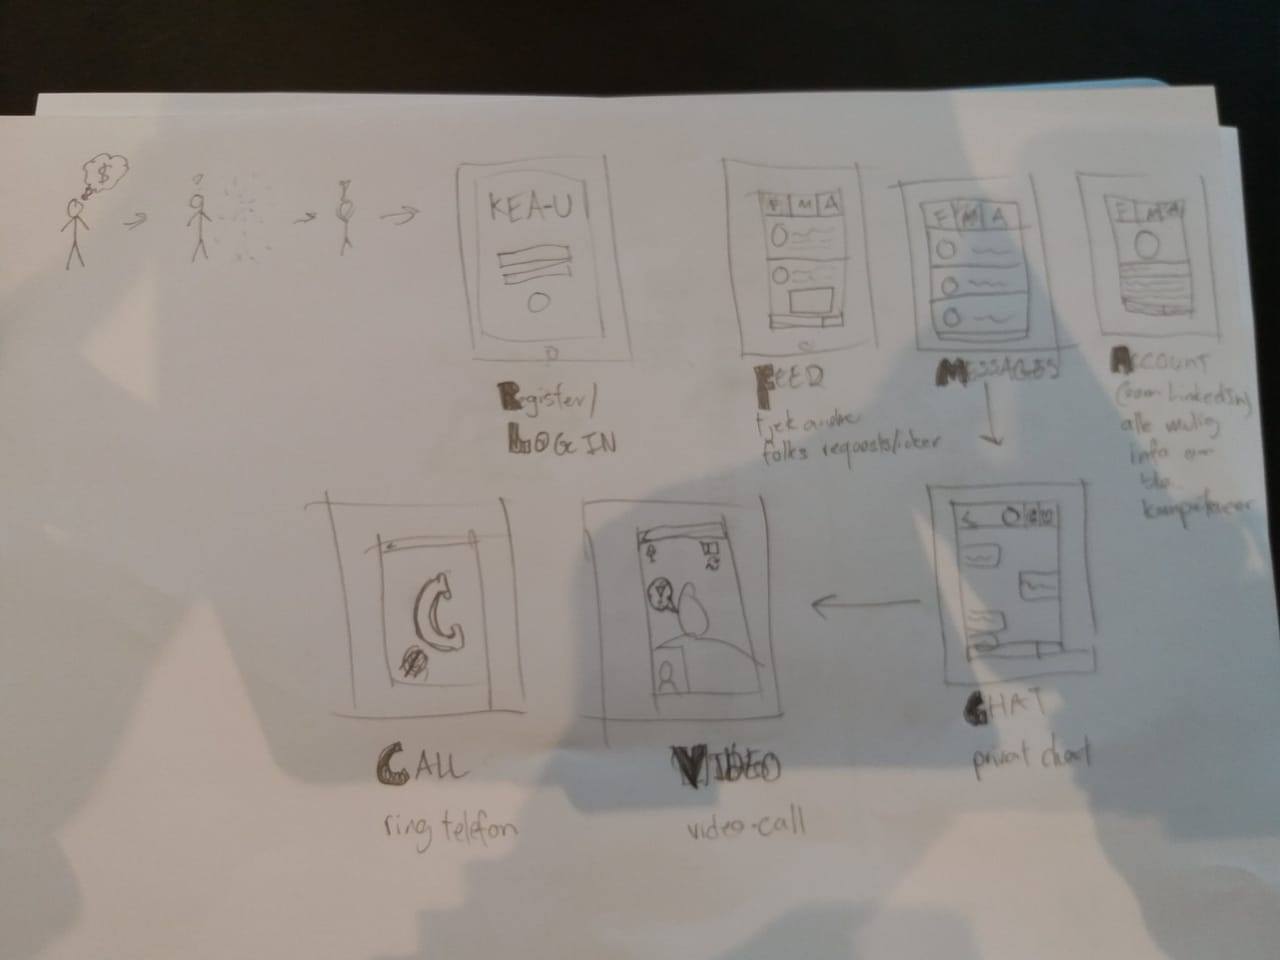 $
?
KEA-U
Register/
LOGIN
F M A
FEED
tjek andre
folks requests/
F M A
MESSAGES
F M A
ACCOUNT
(som LinkedIn)
alle mulig
info om
kompetencer
CALL
ring telefon
VIDEO
video-call
CHAT
privat chat